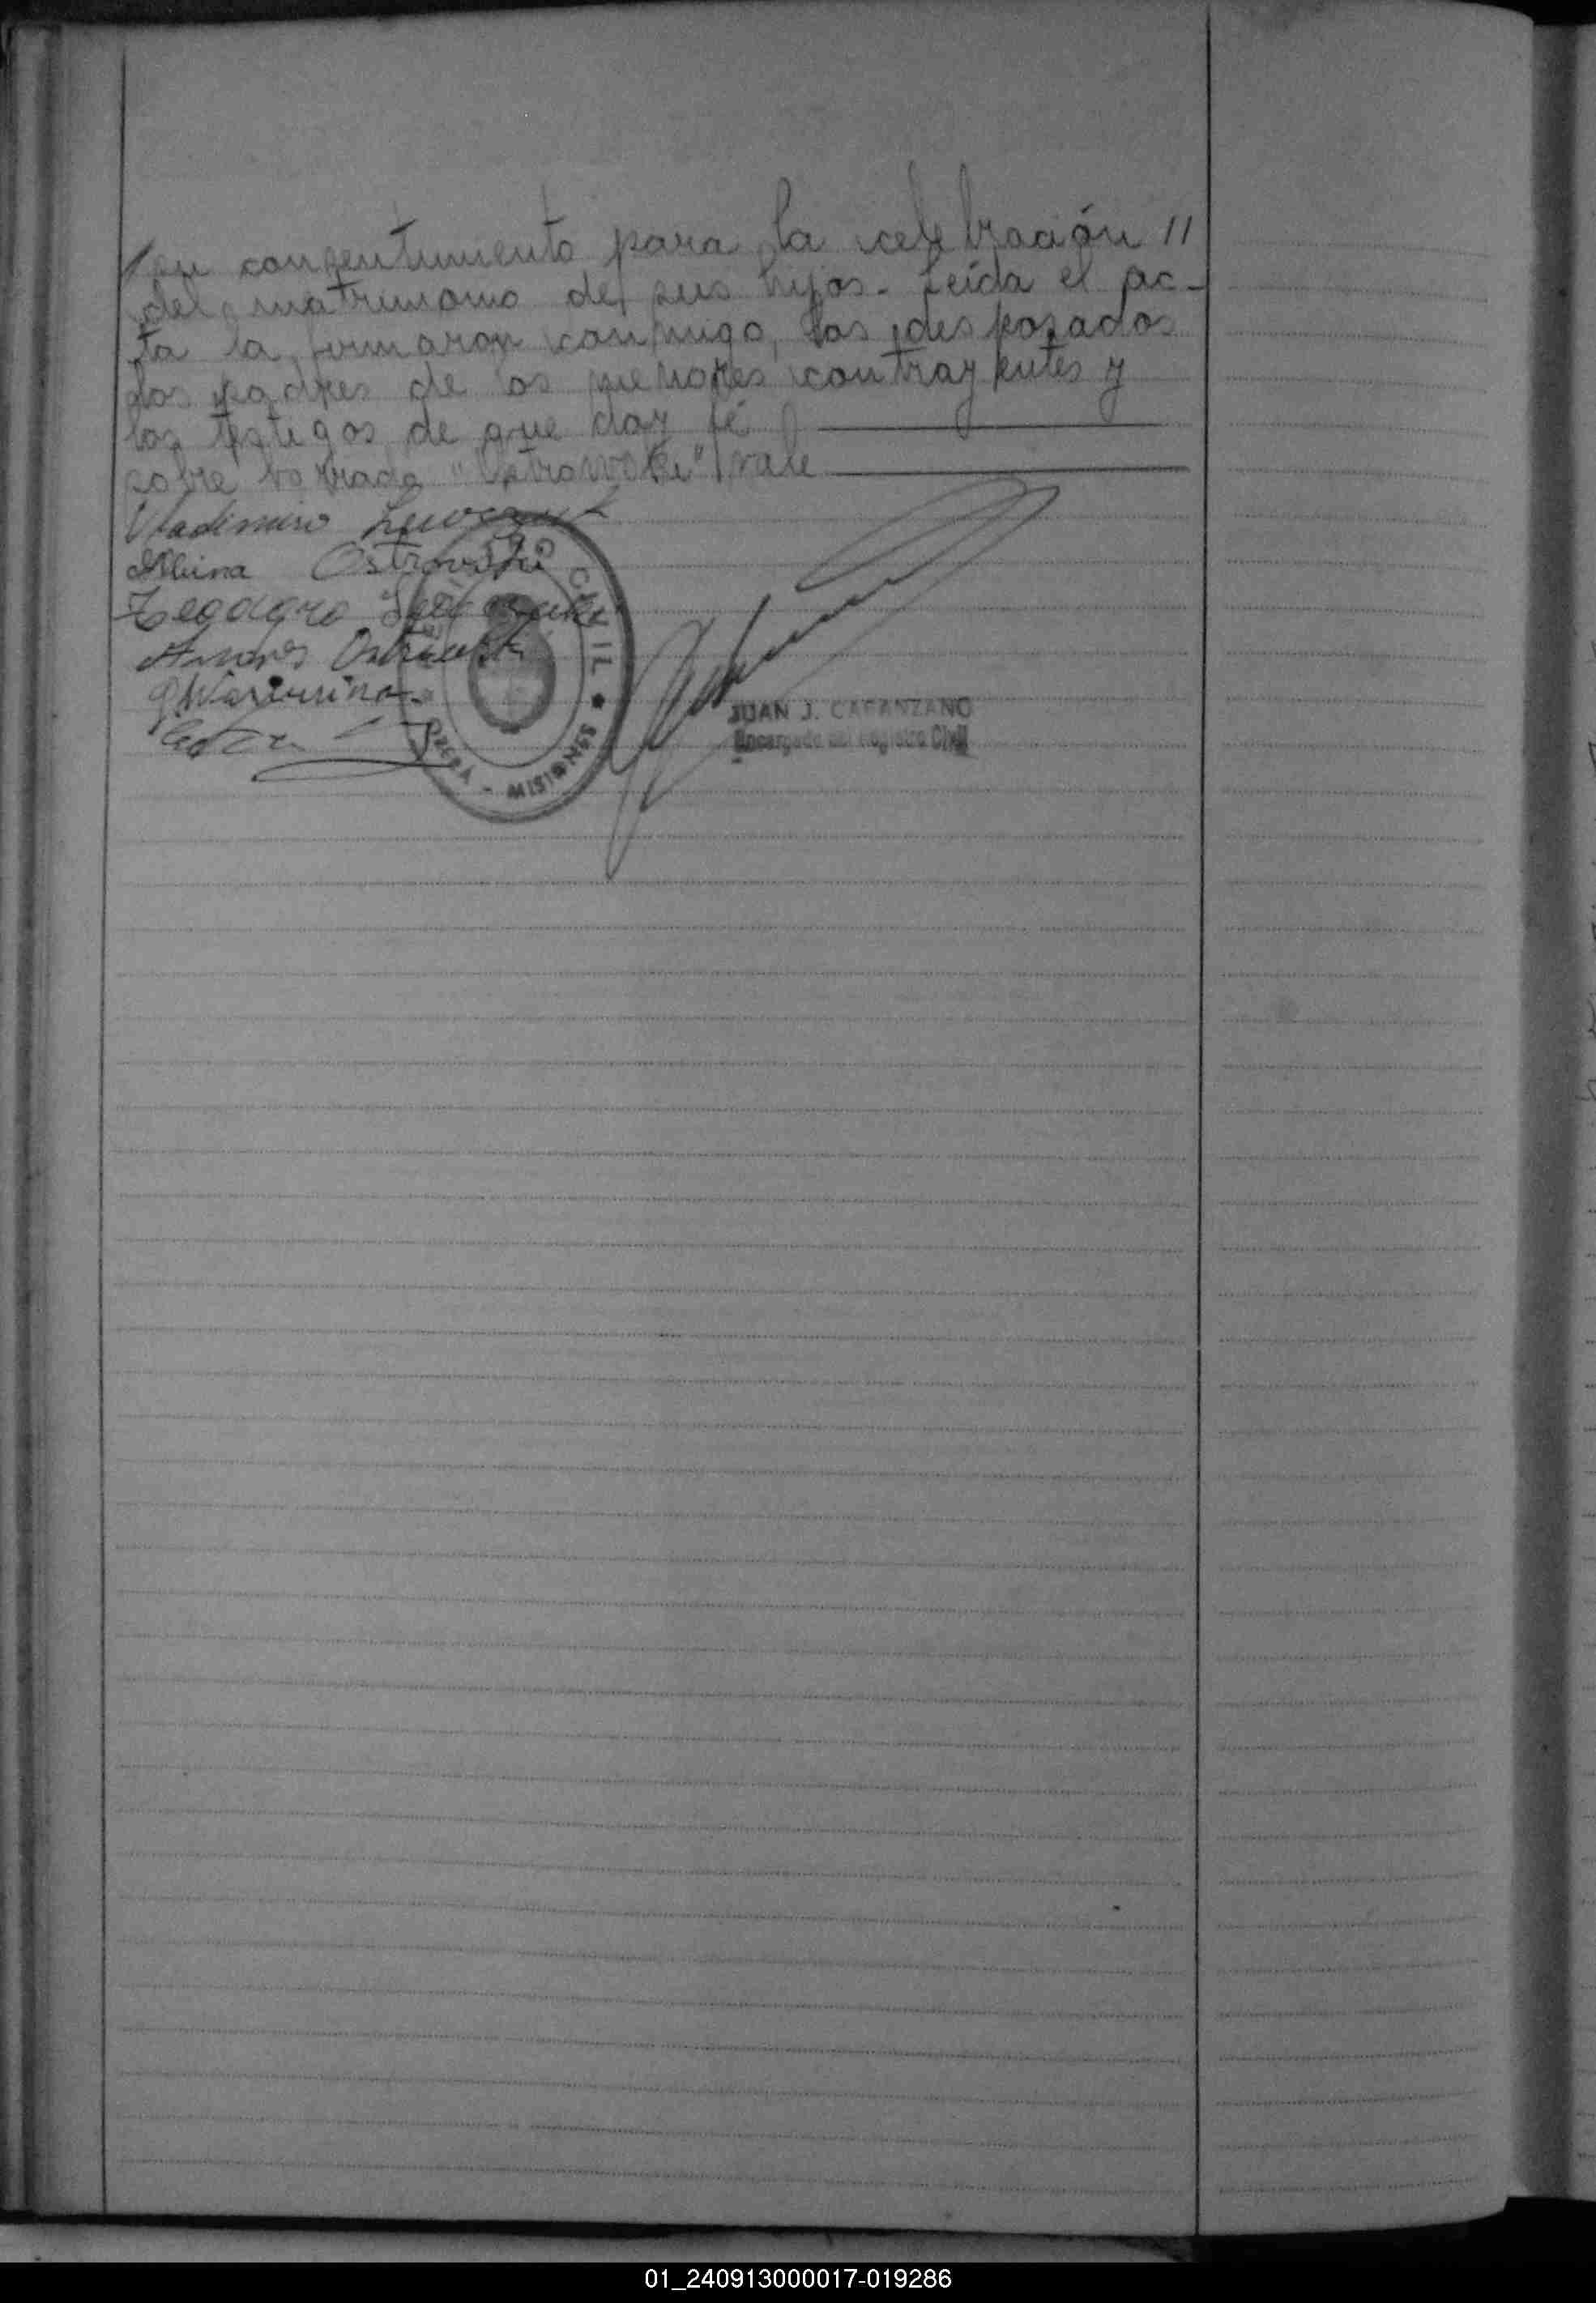 su consentimiento para la celebración //
del matrimonio de sus hijos - Leída el ac-
ta la firmaron conmigo, los desposados
los padres de los menores contrayentes y
los testigos de que doy fé
sobre borrado "Ostrowski" vale
Vladimiro
Albina Ostrowski
Andres
REGISTRO CIVIL ★ MISIONES
JUAN J. CACANZANO
Encargado del Registro Civil
01_240913000017-019286